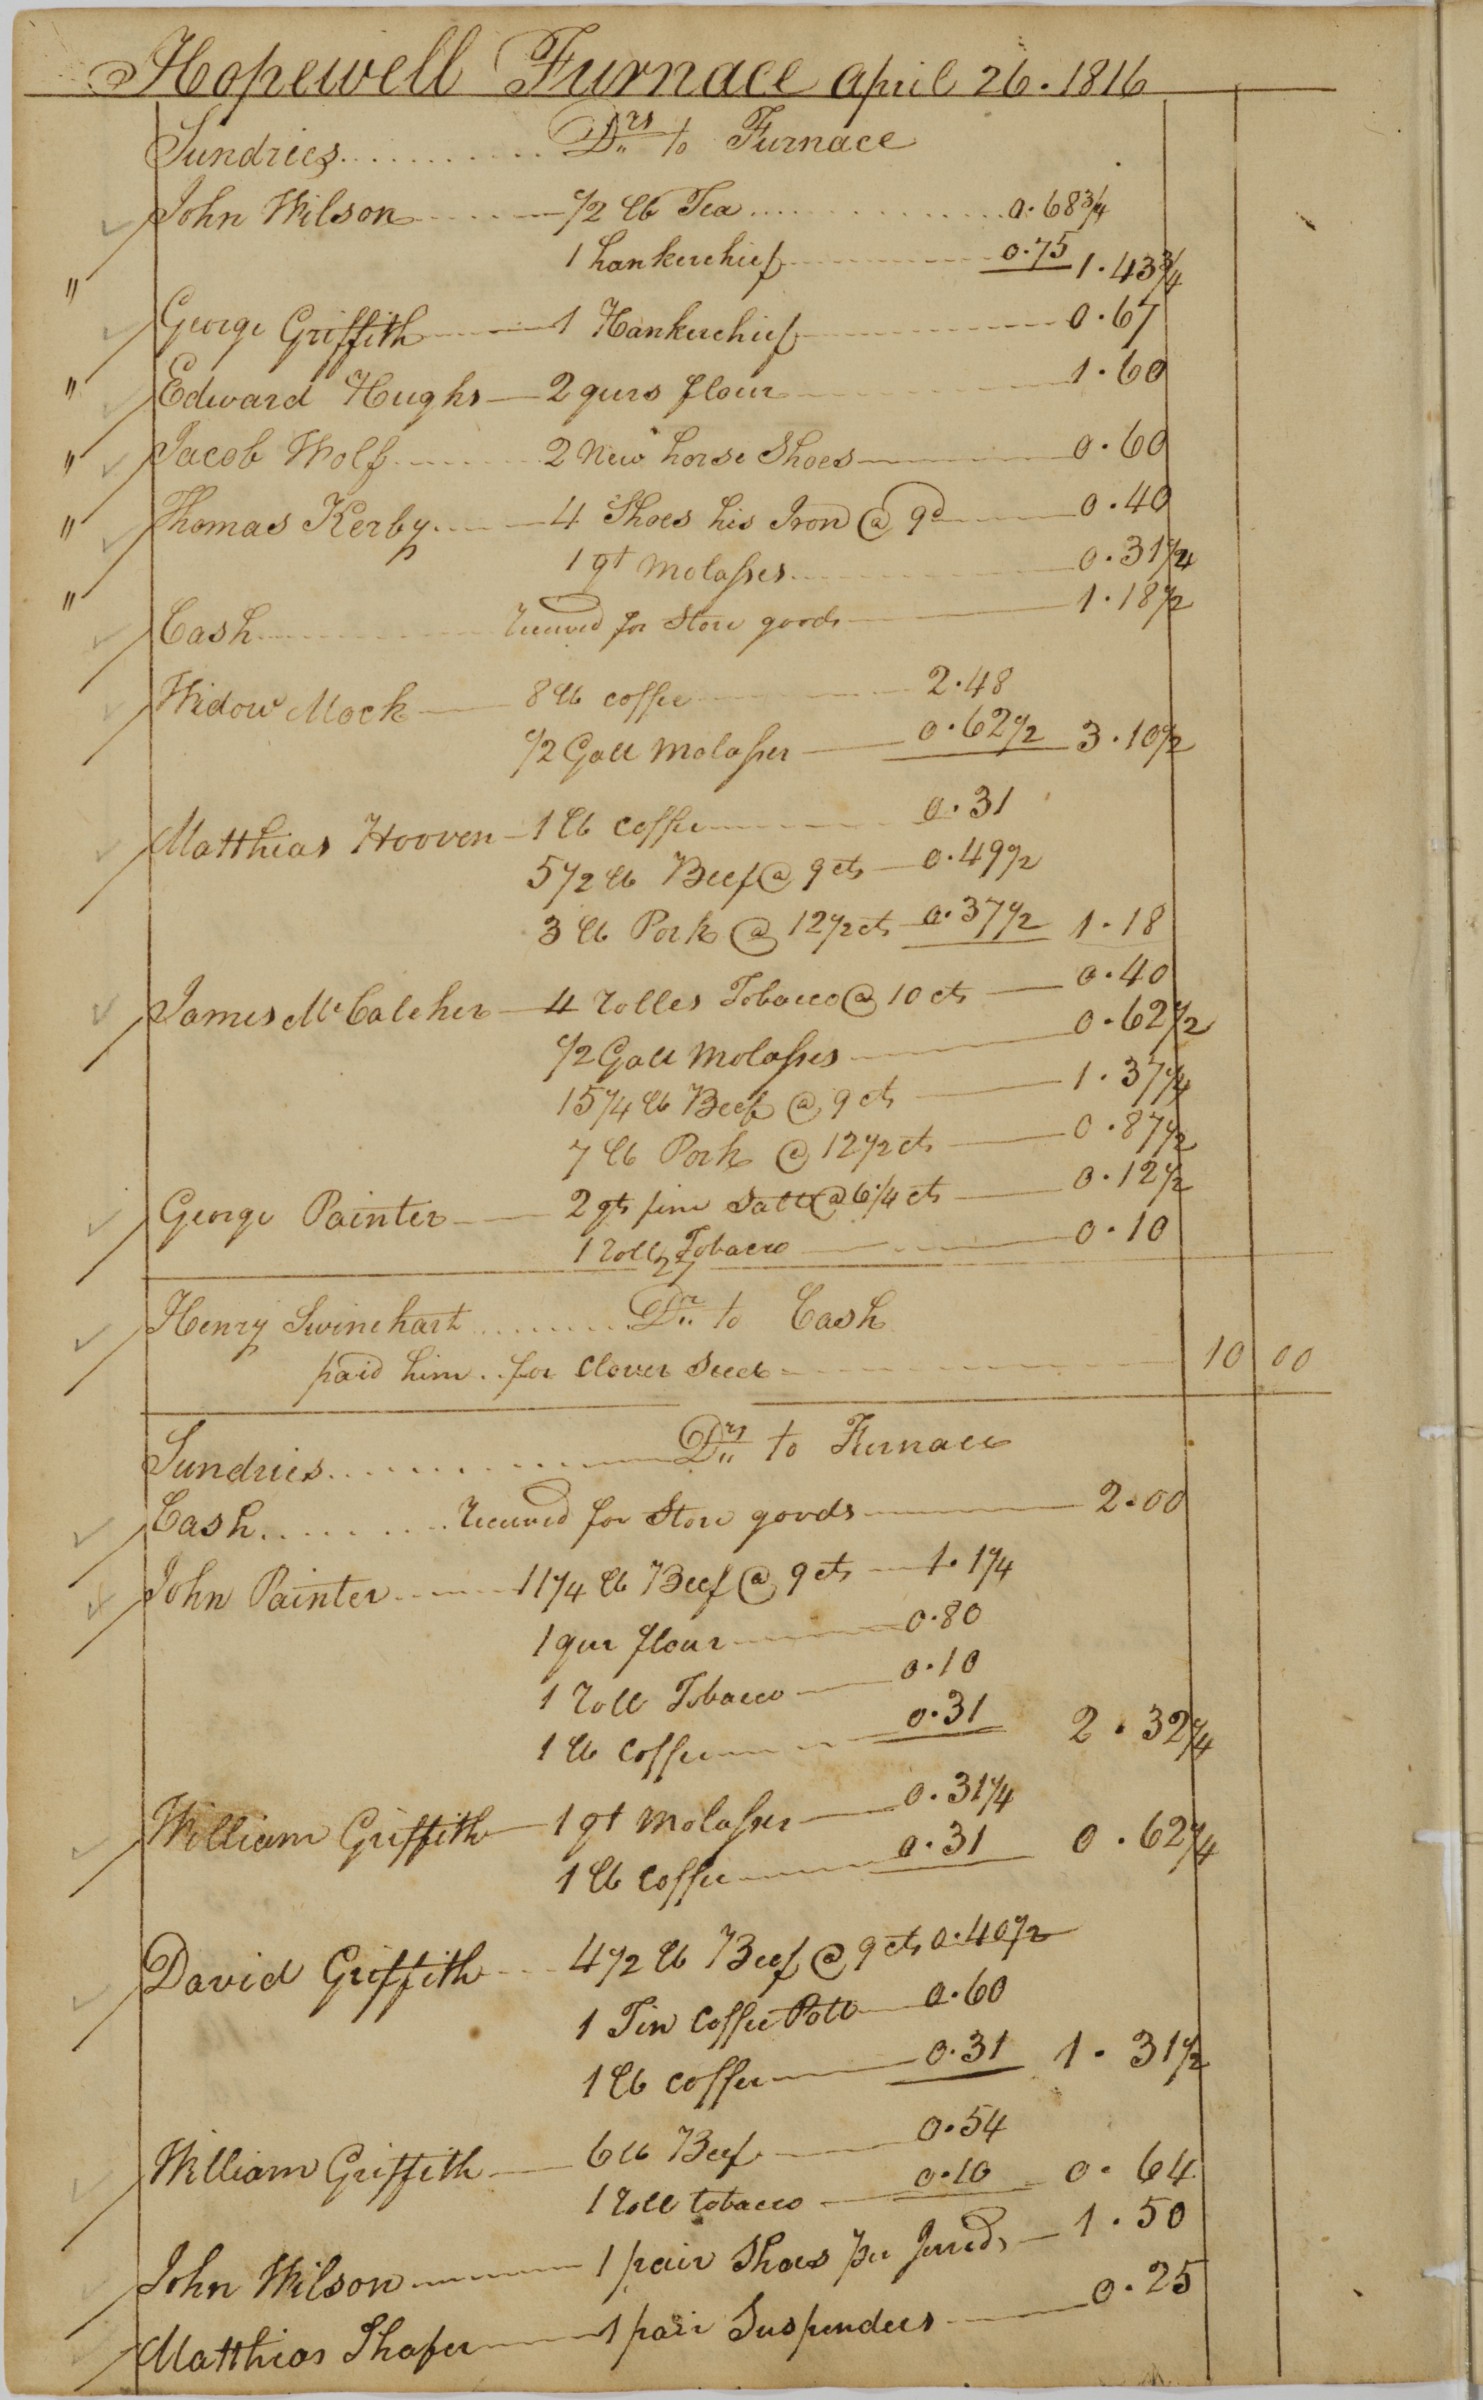 Hopewell Furnace April 26. 1816
Sundries.......... Drs to Furnace
John Wilson 1/2 lb Tea 0.68 3/4
1 hankerchief 0.75 1.43 3/4
"
George Griffith 1 Hankerchief 0.67
" Edward Hughs 2 qurs flour 1.60
" Jacob Wolf 2 New horse Shoes 0.60
" Thomas Kerby 4 Shoes his Iron @ 9d 0.40
1 qt molasses 0.31 1/4
"
Cash received for Store goods 1.18 1/2
Widow Mock 8 lb coffee 2.48
1/2 Gall molasses 0.62 1/2 3.10 1/2
Matthias Hooven 1 lb coffee 0.31
5 1/2 lb Beef @ 9 cts 0.49 1/2
3 lb Pork @ 12 1/2 cts 0.37 1/2 1.18
James McCaleher 4 rolles Tobacco @ 10 cts 0.40
1/2 Gall molasses 0.62 1/2
15 1/4 lb Beef @ 9 cts 1.37 1/4
7 lb Pork @ 12 1/2 cts 0.87 1/2
George Painter 2 qts fine Salt @ 6 1/4 cts 0.12 1/2
1 roll Tobacco 0.10
27
Henry Swinehart Dr to Cash
paid him for Clover Seed 10 00
Sundries Drs to Furnace
Cash received for Store goods 2.00
John Painter 11 1/4 lb Beef @ 9 cts 1.1 1/4
1 qur flour 0.80
1 roll Tobacco 0.10
1 lb Coffee 0.31 2.32 1/4
William Griffith 1 qt molasses 0.31 1/4
1 lb Coffee 0.31 0.62 1/4
David Griffith 4 1/2 lb Beef @ 9 cts 0.40 1/2
1 Tin Coffee Pott 0.60
1 lb coffee 0.31 1.31 1/2
William Griffith 6 lb Beef 0.54
1 roll tobacco 0.10 0.64
John Wilson 1 pair Shoes per 1.50
Matthias Shafer 1 pair Suspenders 0.25